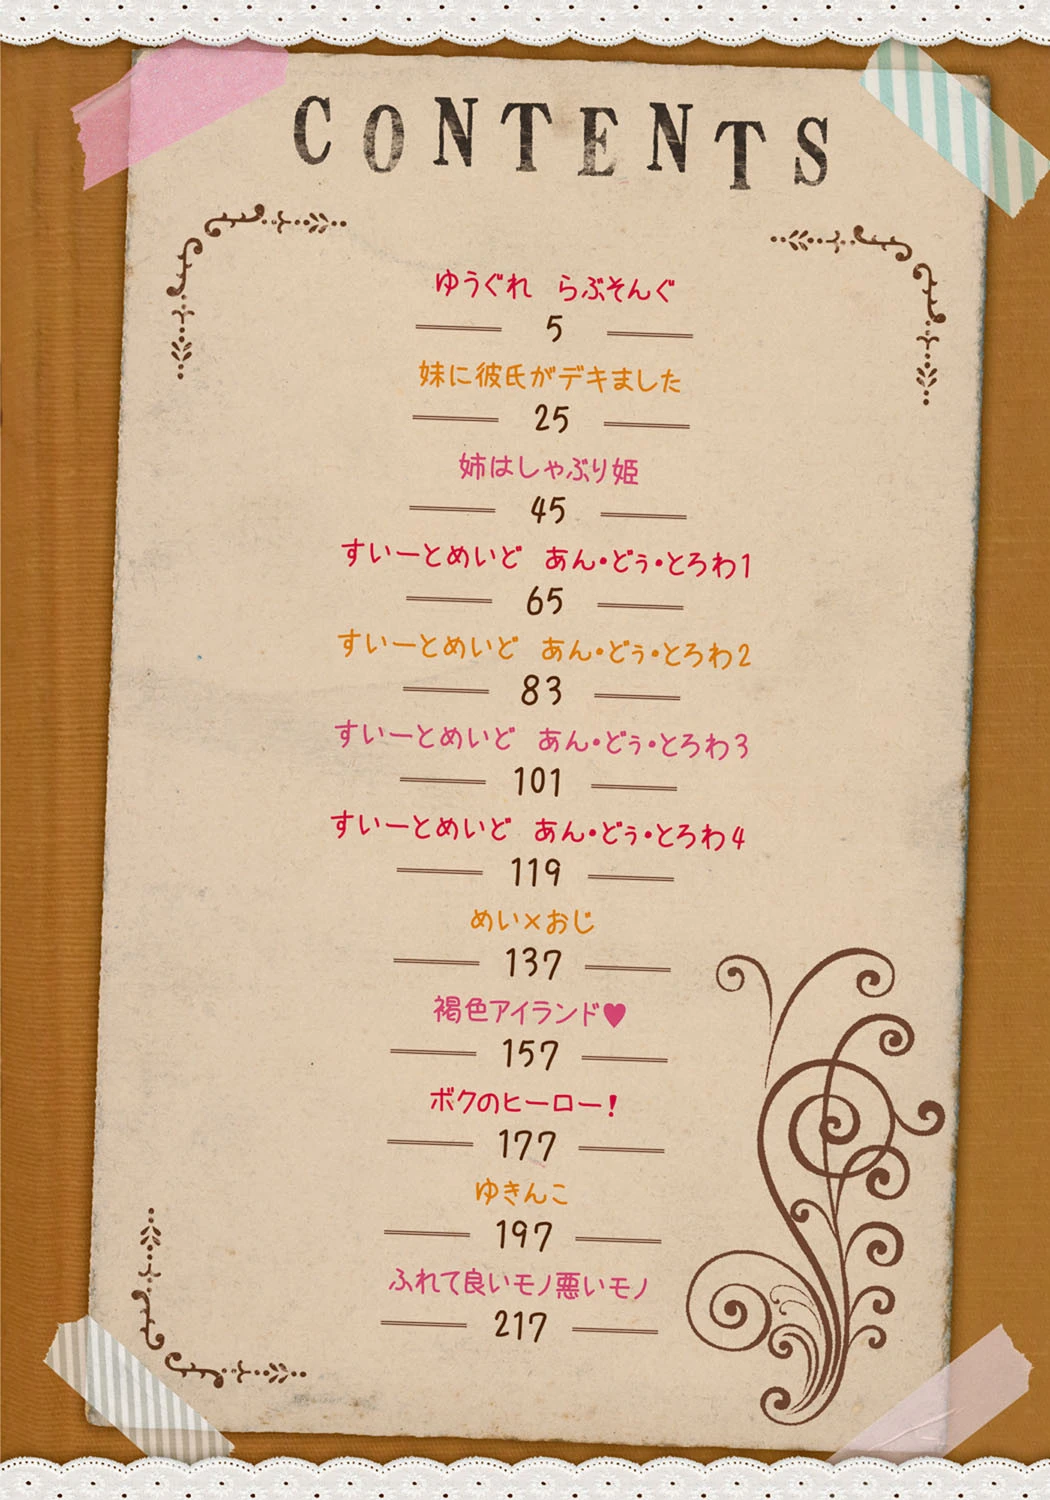 CONTENTS
ゆうぐれ　らぶそんぐ
5
妹に彼氏がデキました
25
姉はしゃぶり姫
45
すいーとめいど　あん・どぅ・とろわ1
65
すいーとめいど　あん・どぅ・とろわ2
83
すいーとめいど　あん・どぅ・とろわ3
101
すいーとめいど　あん・どぅ・とろわ4
119
めい×おじ
137
褐色アイランド♥
157
ボクのヒーロー！
177
ゆきんこ
197
ふれて良いモノ悪いモノ
217